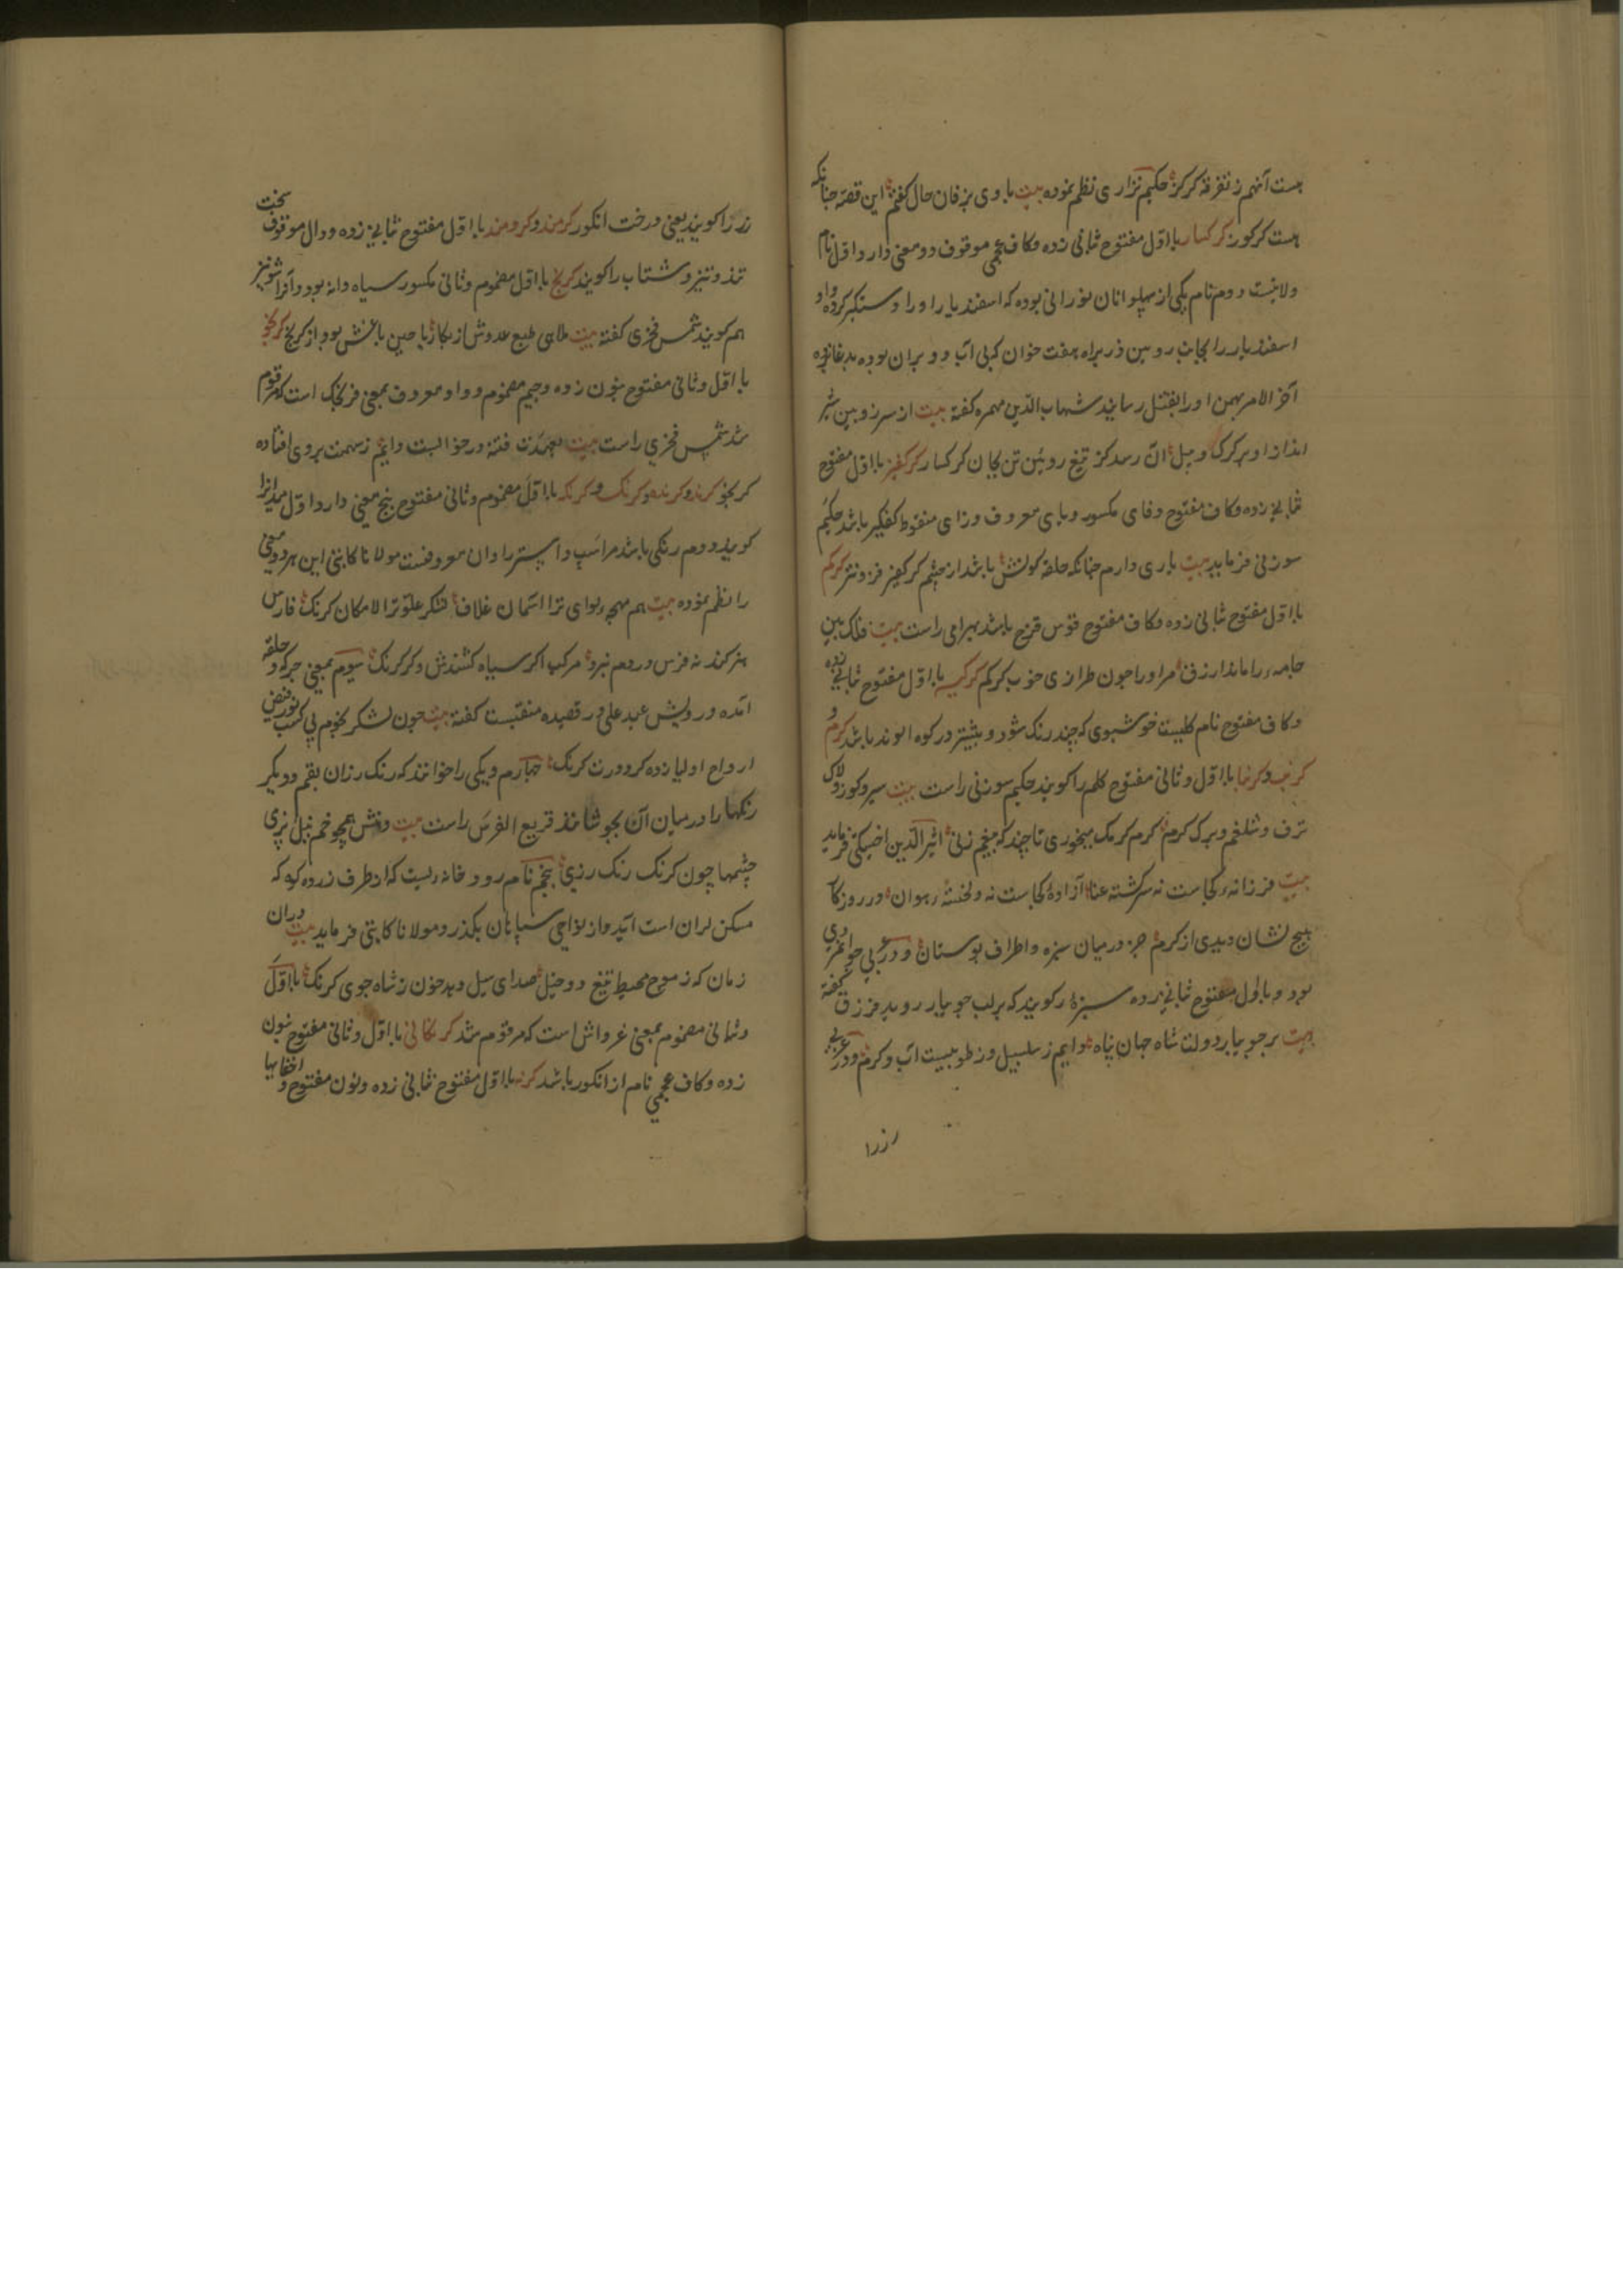 هست آنهم ز تفرقه کرکز حکیم نزاری نظم نموده بیت با وی بزفان حال کفتم این قصه چنانکه
هست کرکوز کرکسار با اول مفتوح ثبانی زده وکاف عجمی موقوف دو معنی دارد اول نام
ولایتست دوم نام یکی از پهلوانان تورانی بوده که اسفندیار او را دستکیر کرده و او
اسفندیار را بجانب رویین دز براه هفت خوان که بی آب و ویران بوده
آخر الامر بهمن او را بقتل رسانید شهاب الدین مهمره کفته بیت از سر زوبین شیر
انداز او بر کرک و پیل آن رسد کز تیغ رویین تن بجان کرکسار کرکفیز با اول مفتوح
ثبانی زده وکاف مفتوح وفای مکسور ویای معروف وزای منقوط کفکیر باشد حکیم
سوزنی فرماید بیت یاری دارم چنانکه حلقه کونش باشد از چشم کرکفیز فزونتر کرکم
با اول مفتوح ثبانی زده وکاف مفتوح قوس قزح باشد بهرامی راست بیت فلک بین
جامه را ماند ازرق مر او را چون طرازی خوب کرکم کرکیسه با اول مفتوح ثبانی زده
وکاف مفتوح نام کلیست خوشبوی که چند رنک شود و بیشتر در کوه الوند باشد کرم و
کرنب و کرنبا با اول وثانی مفتوح کلم را کویند حکیم سوزنی راست بیت سیر و کوز و لاک
ترف و شلغم و برک کرم کرم کرمک میخوری تا چند که میخم زنی اثیر الدین اخسیکتی فرماید
بیت فرزانه کجاست نه سرکشته عنا آزادهٔ کجاست نه دلخسته هوان در روزکار
هیچ نشان دیدی از کرم جز در میان سبزه و اطراف بوستان و در عربی جوانمردی
بود و با اول مفتوح ثبانی زده سبزهٔ را کویند که بر لب جویبار روید فرزدق کفته
بیت بر جویبار دولت شاه جهان پناه دایم ز سلسبیل وز طوبیست آب و کرم و در عربی
رز را
رز را کویند یعنی درخت انکور کرمند و کرومند با اول مفتوح ثبانی زده و دال موقوف سخت
تند و تیز و شتاب را کویند کرنج با اول مضموم وثانی مکسور سیاه دانه بود و آنرا شونیز
هم کویند شمس فخری کفته بیت
با اول وثانی مفتوح بنون زده وجیم مضموم و واو معروف بمعنی فرنجک است که مرقوم
شد شمس فخری راست بیت بعهدت فتنه در خوابست دایم ز سهمت بروی افتاده
کرنجو کرند و کرنده و کرنک و کرنکه با اول مضموم وثانی مفتوح پنج معنی دارد اول میدانرا
کویند دوم رنکی باشد مر اسپ و استر را و آن معروفست مولانا کاتبی این هر دو معنی
را نظم نموده بیت هم مهچه لوای ترا آسمان غلاف لشکر علو ترا لامکان کرنک فارس
هنر کند نه فرس در دم نبرد مرکب اکر سیاه کشندش و کر کرنک سیوم بمعنی جرکه و حلقه
آمده درویش عبد علی در قصیده منقبت کفته بیت چون لشکر نجوم پی کسب نور فیض
ارواح اولیا زده کرد درت کرنک چهارم دیکی را خوانند که رنک رزان بقم و دیکر
رنکها را در میان آن بجوشانند قریع الفرس راست بیت دهنش همچو خم نیل پزی
چشمها چون کرنک رنک رزی پنجم نام رودخانه ایست که از طرف زرده کوه که
مسکن لران است آید و از نواحی سپاهان بکذرد مولانا کاتبی فرماید بیت در آن
زمان که ز موج محیط تیغ دو خیل صدای سیل دهد خون ز شاه جوی کرنک با اول
وثانی مضموم بمعنی غرواش است که مرقوم شد کرنکانی با اول وثانی مفتوح بنون
زده وکاف عجمی نام از انکور باشد کرنه با اول مفتوح ثبانی زده ونون مفتوح و اخفا یها